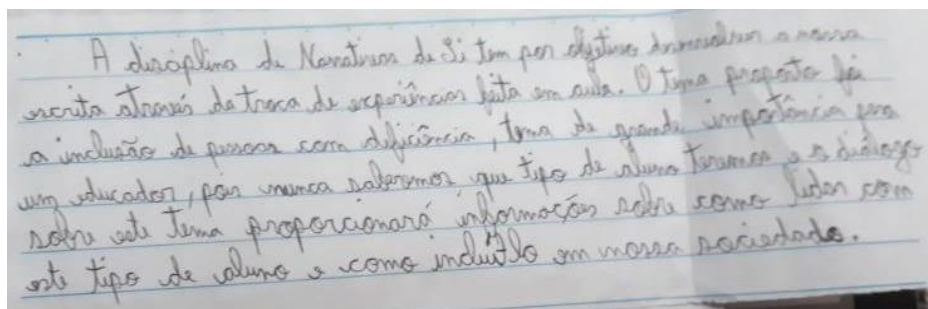 A disciplina de Narativas de Si tem por objetivo desenvolver a nossa
escrita através da troca de experiências feita em aula. O tema proposto foi
a inclusão de pessoas com deficiência, tema de grande importância pra
um educador, pois nunca saberemos que tipo de aluno teremos e o diálogo
sobre este tema proporcionará informações sobre como lidar com
este tipo de aluno e como incluí-lo em nossa sociedade.